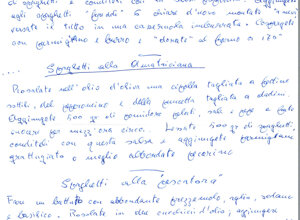 agli spaghetti "freddi" 6 chiare d'uovo montate "a neve"
versate il tutto in una casseruola imburrata. Cospargete
con parmigiano e burro e "dorate" al forno a 170°
.... Spaghetti alla Amatriciana
Rosolate nell'olio d'oliva una cipolla tagliata a fettine
sottili, del peperoncino e della pancetta tagliata a dadini.
Aggiungete 500 gr di pomodoro pelati, sale e pepe e fate
cuocere per mezz'ora circa. Lessate 500 gr di spaghetti
conditeli con questa salsa e aggiungete parmigiano
grattugiato o meglio abbondate pecorino
Spaghetti alla "pescatora"
Fare un battuto con abbondante prezzemolo, aglio, sedano
e basilico. Rosolate in due cucchiai d'olio, aggiungere